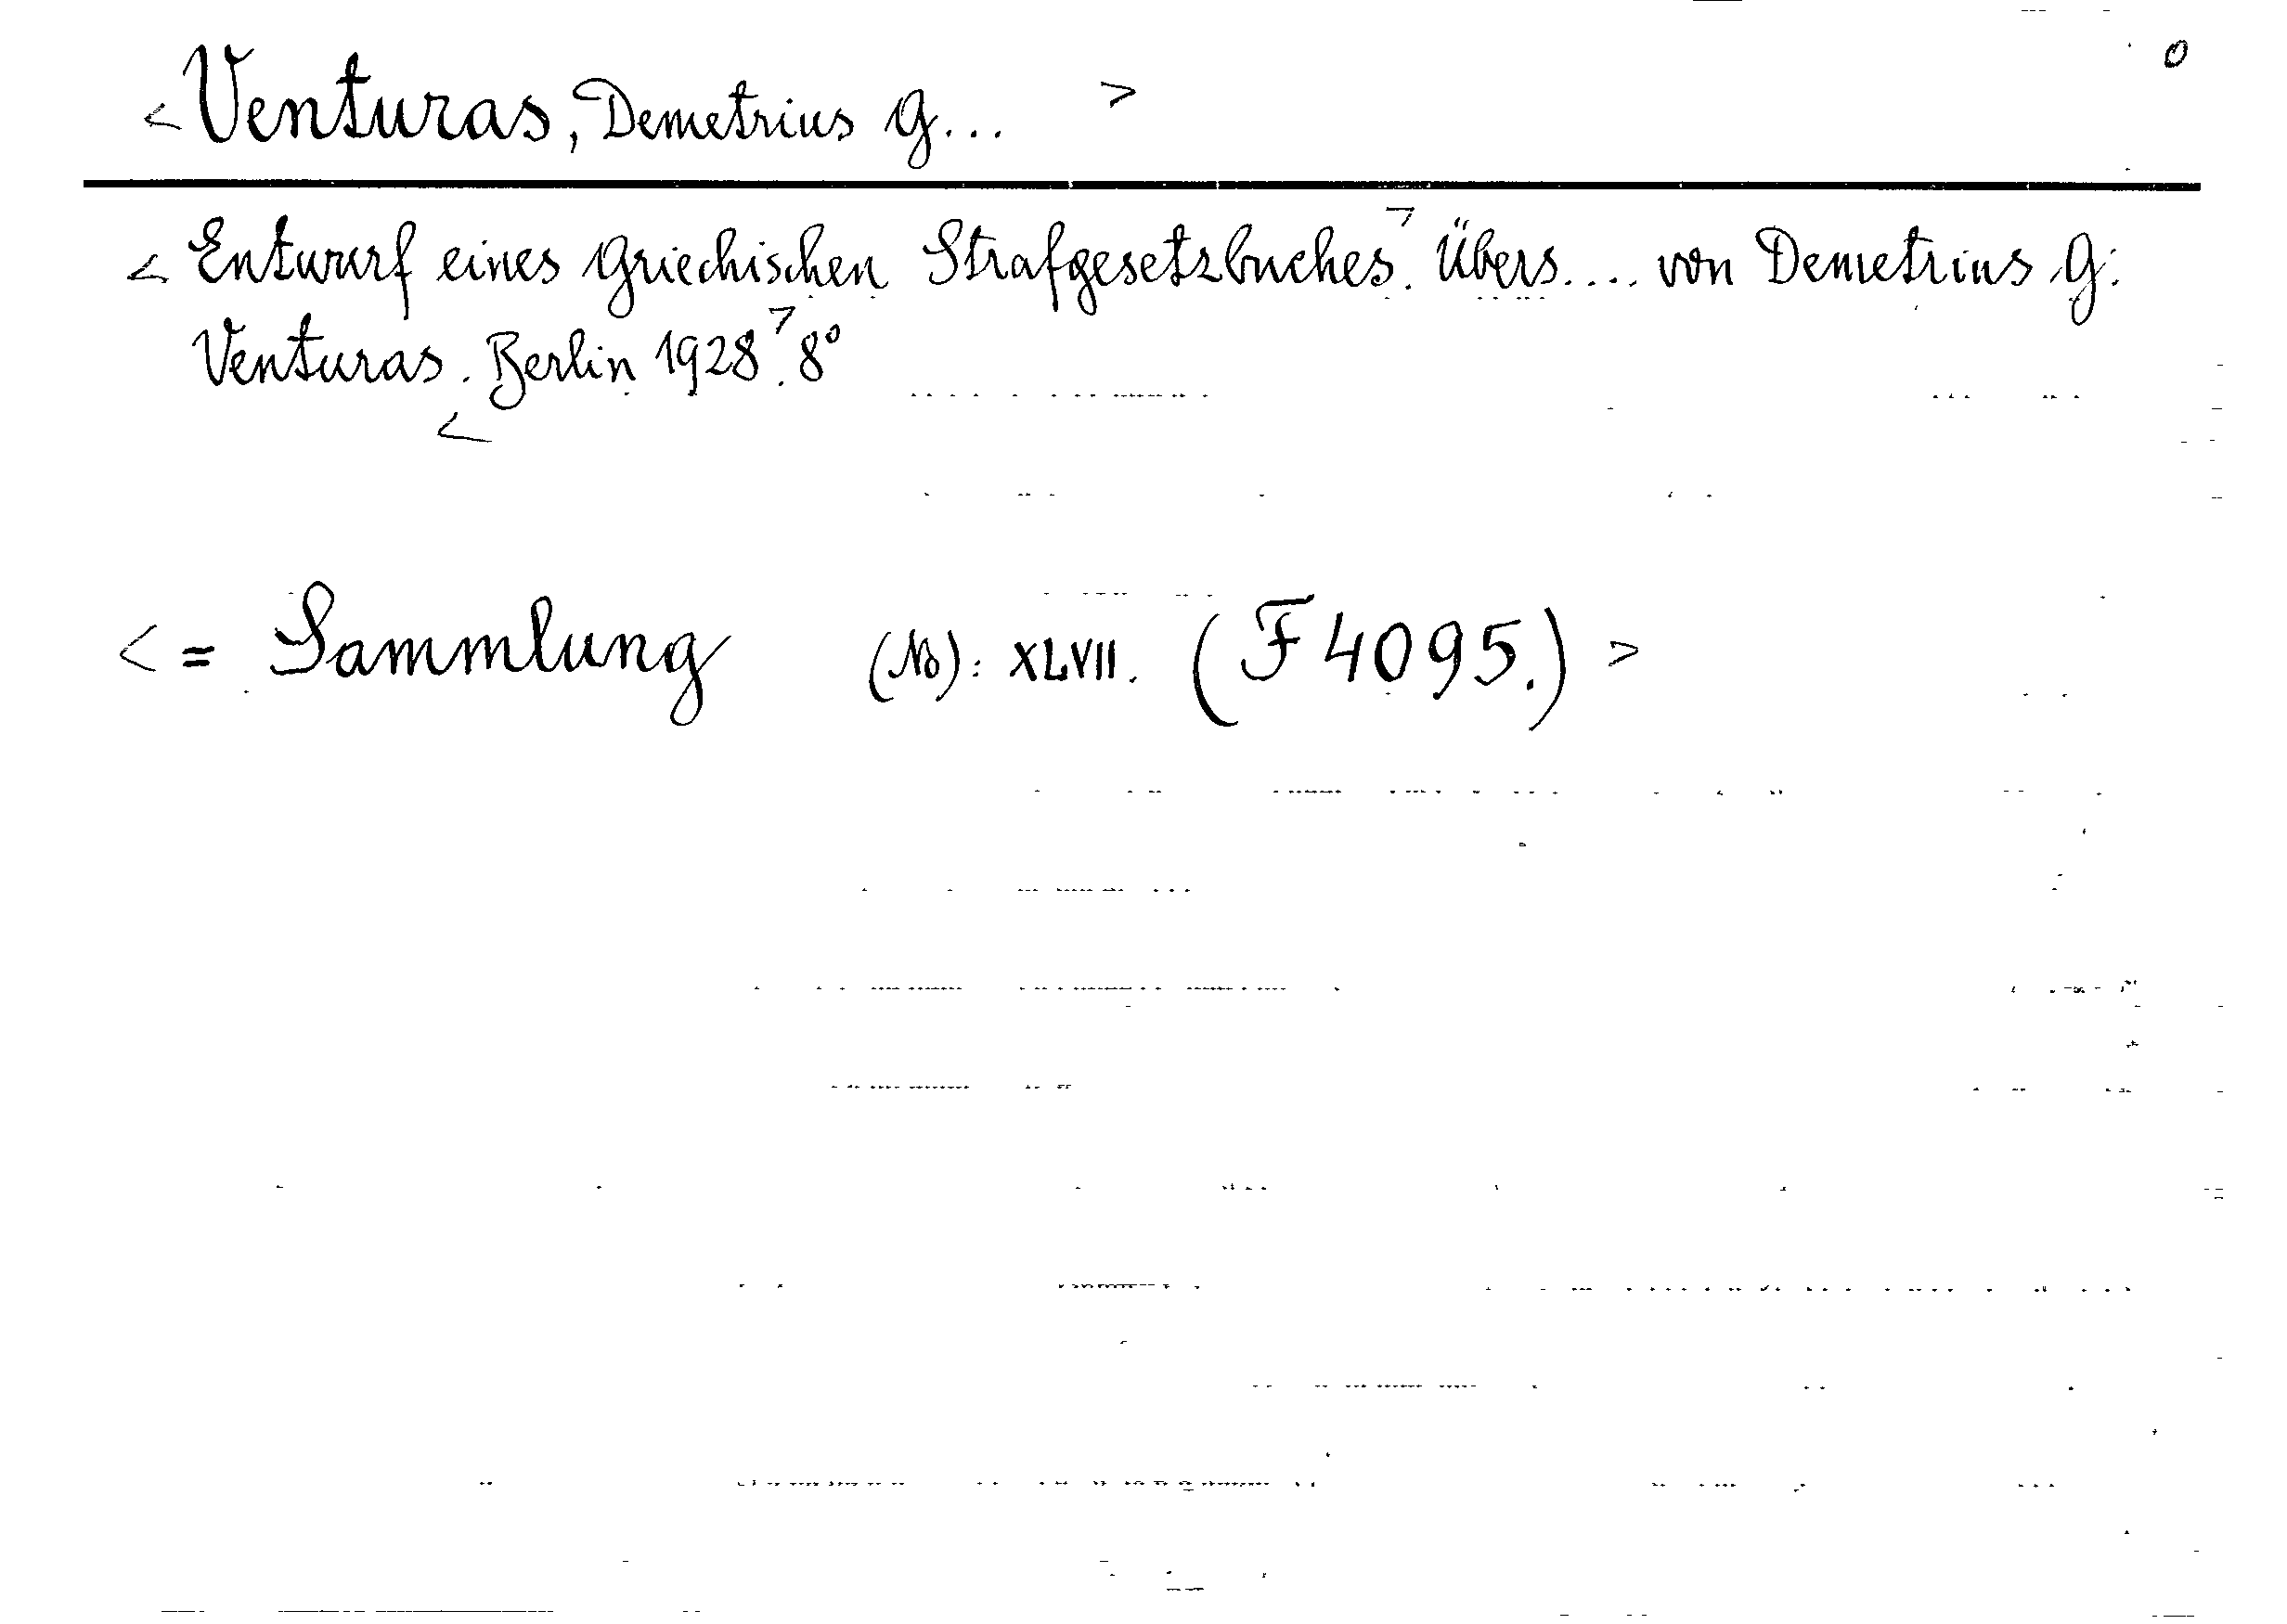 0
< Venturas, Demetrius G... >
< Entwurf eines Griechischen Strafgesetzbuches. > Übers.... von Demetrius G.
Venturas. < Berlin 1928 >. 8°
< = Sammlung (No): XLVII. (F 4095.) >